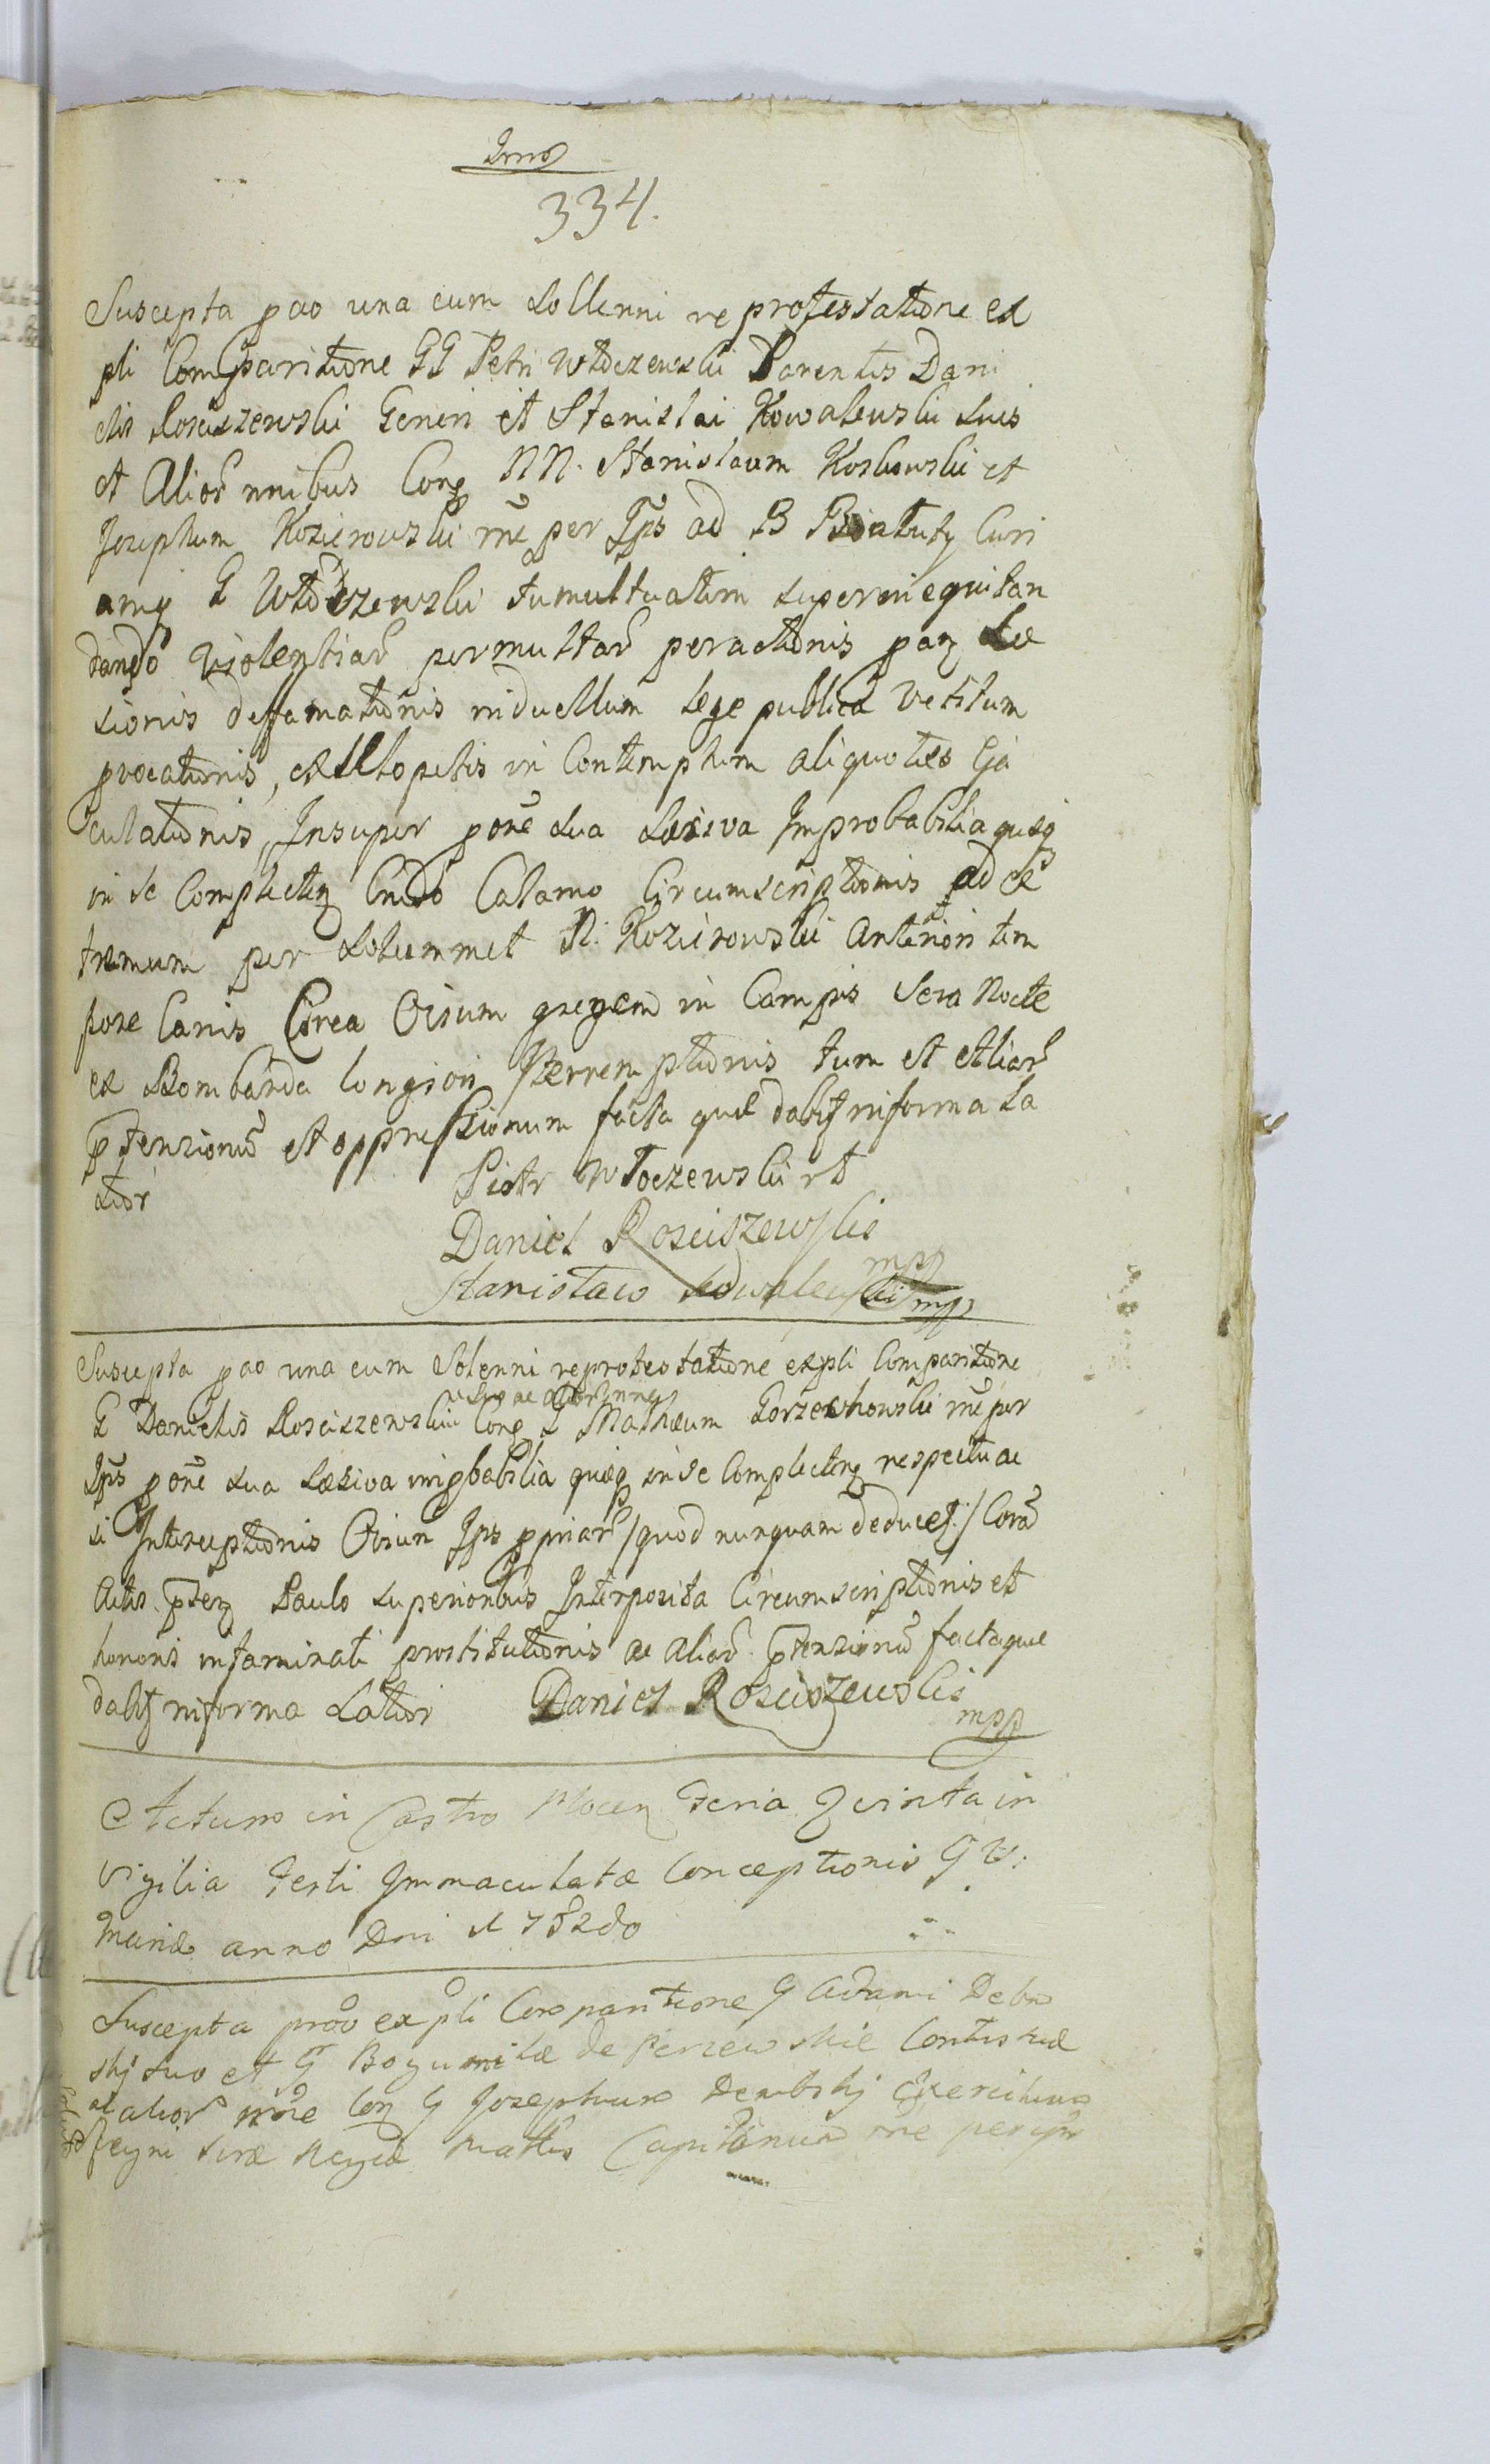 334.
Suscepta pao una cum Sollenni reprotestatione ex
pli Comparitione GG Petri Włoczewski Parentis Dani
elis Rosciszewski Generi et Stanislai Kowalewski suis
et Alior nnibus Cong NN. Stanislaum Koskowski et
Josephum Kozierowski rne per Ips ad B Białuty Curi
amq G Włoczewski tumultuatim superinequitan
dando Violentiar permultar peractionis paq Lae
sionis deffamationis in duellum lege publica Vetitum
provocationis, ex Sclopetis in Contemptum aliquoties Eja
culationis, Insuper pone sua Laesiva Improbabilia quaeq
in se Complecten Crudo Calamo Circumscriptionis ad ex
tremum per Solummet N. Kozierowski Anteriori tem
pore Canis Circa Ovium gregem in Campis Sera Nocte
ex Bombarda longiori Perremptionis tum et Aliar
ptensionu et oppressionum facta quae dabit in forma La
tior
Piotr Włoczewski rt
Daniel Rosciszewski
mpp
Stanisław Kowalewski mpp
Suscepta pao una cum Solenni reprotestatione expli Comparitione
suo ac alior nne
G Danielis Rosciszewski Cong G Mathaeum Gorzechowski rne per
Ips pone sua Laesiva improbabilia quaeq in se Complecten respectu ac
si Interceptionis Ovium Ips ppriar /quod nunquam deducet:/ Cora
Actis pten Paulo superioribus Interposita Circumscriptionis et
honoris intaminati prostitutionis ac aliar ptensionu facta quae
dabit in forma Latiori Daniel Rosciszewski
mpp
Actum in Castro Plocen Feria Quinta in
Vigilia Festi Immaculatae Conceptionis G V:
Mariae anno Dni 1782do
Suscepta prao expli Comparitione G Adami Dembo
skj suo et G Bogumilae de Perzewskie Contis suae
et alior nne Con G Josephum Dembskj Exercituus
Regni Scrae Regiae Mattis Capitanum rne per ips